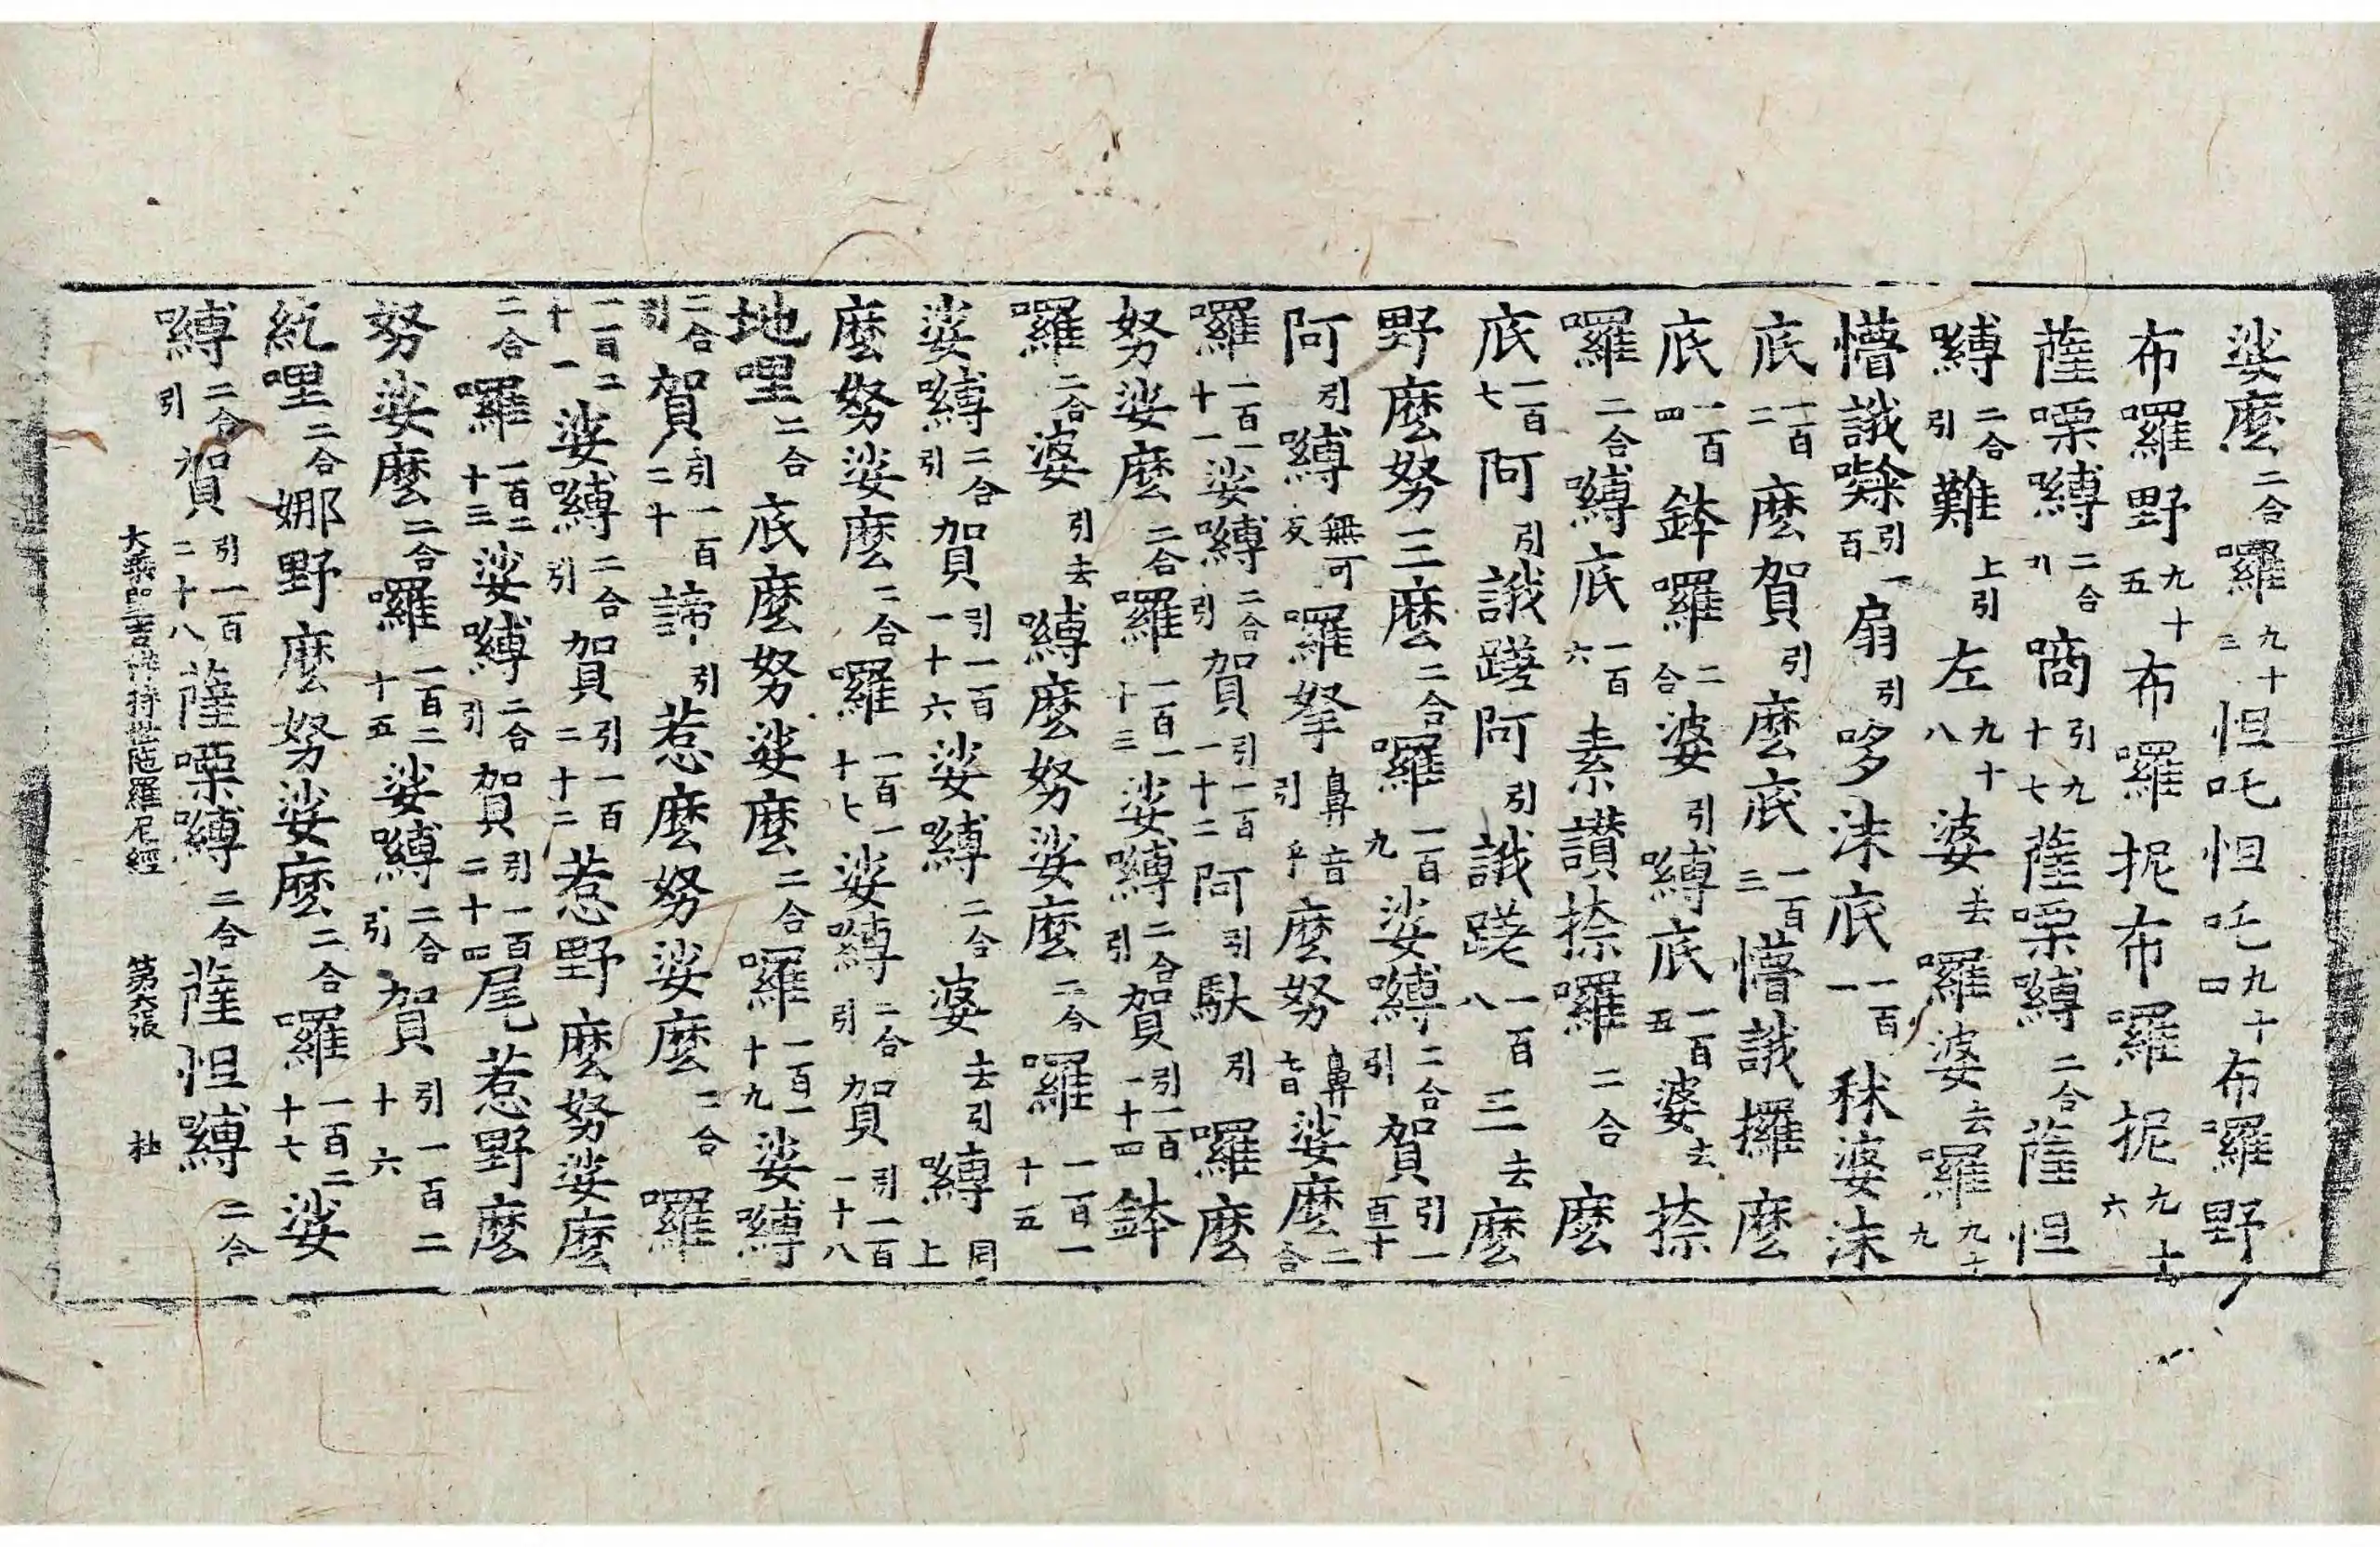 娑麼二合囉九十三怛吒怛吒九十四布囉野
布囉野九十五布囉抳布囉抳九十六
薩㗚嚩二合引啇引九十七薩㗚嚩二合薩怛
嚩二合引難上引左九十八婆去囉婆去囉九十九
懵誐㘑引一百扇引哆沫底一百一秫婆沫
底一百二麼賀引麼底一百三懵誐攞麼
底一百四鉢囉二合婆引嚩底一百五婆去捺
囉二合嚩底一百六素讃捺囉二合麼
底一百七阿引誐蹉阿引誐蹉一百八三去麼
野麼努三麼二合囉一百九娑嚩二合引賀引一百十
阿引嚩無可反囉拏鼻音引乎麼努鼻音娑麼二合
囉一百一十一娑嚩二合引賀引一百一十二阿引馱引囉麼
努娑麼二合囉一百一十三娑嚩二合引賀引一百一十四鉢
囉二合婆引去嚩麼努娑麼二合囉一百一十五
娑嚩二合引賀引一百一十六娑嚩二合婆去引嚩同上
麼努娑麼二合囉一百一十七娑嚩二合引賀引一百一十八
地哩二合底麼努娑麼二合囉一百一十九娑嚩
二合引賀引一百二十諦引惹麼努娑麼二合囉
一百二十一娑嚩二合引賀引一百二十二惹野麼努娑麼
二合囉一百二十三娑嚩二合引賀引一百二十四尾惹野麼
努娑麼二合囉一百二十五娑嚩二合引賀引一百二十六
紇哩二合娜野麼努娑麼二合囉一百二十七娑
嚩二合引賀引一百二十八薩㗚嚩二合薩怛嚩二合
大乘聖吉祥持世陁羅尼經 第六張 杜